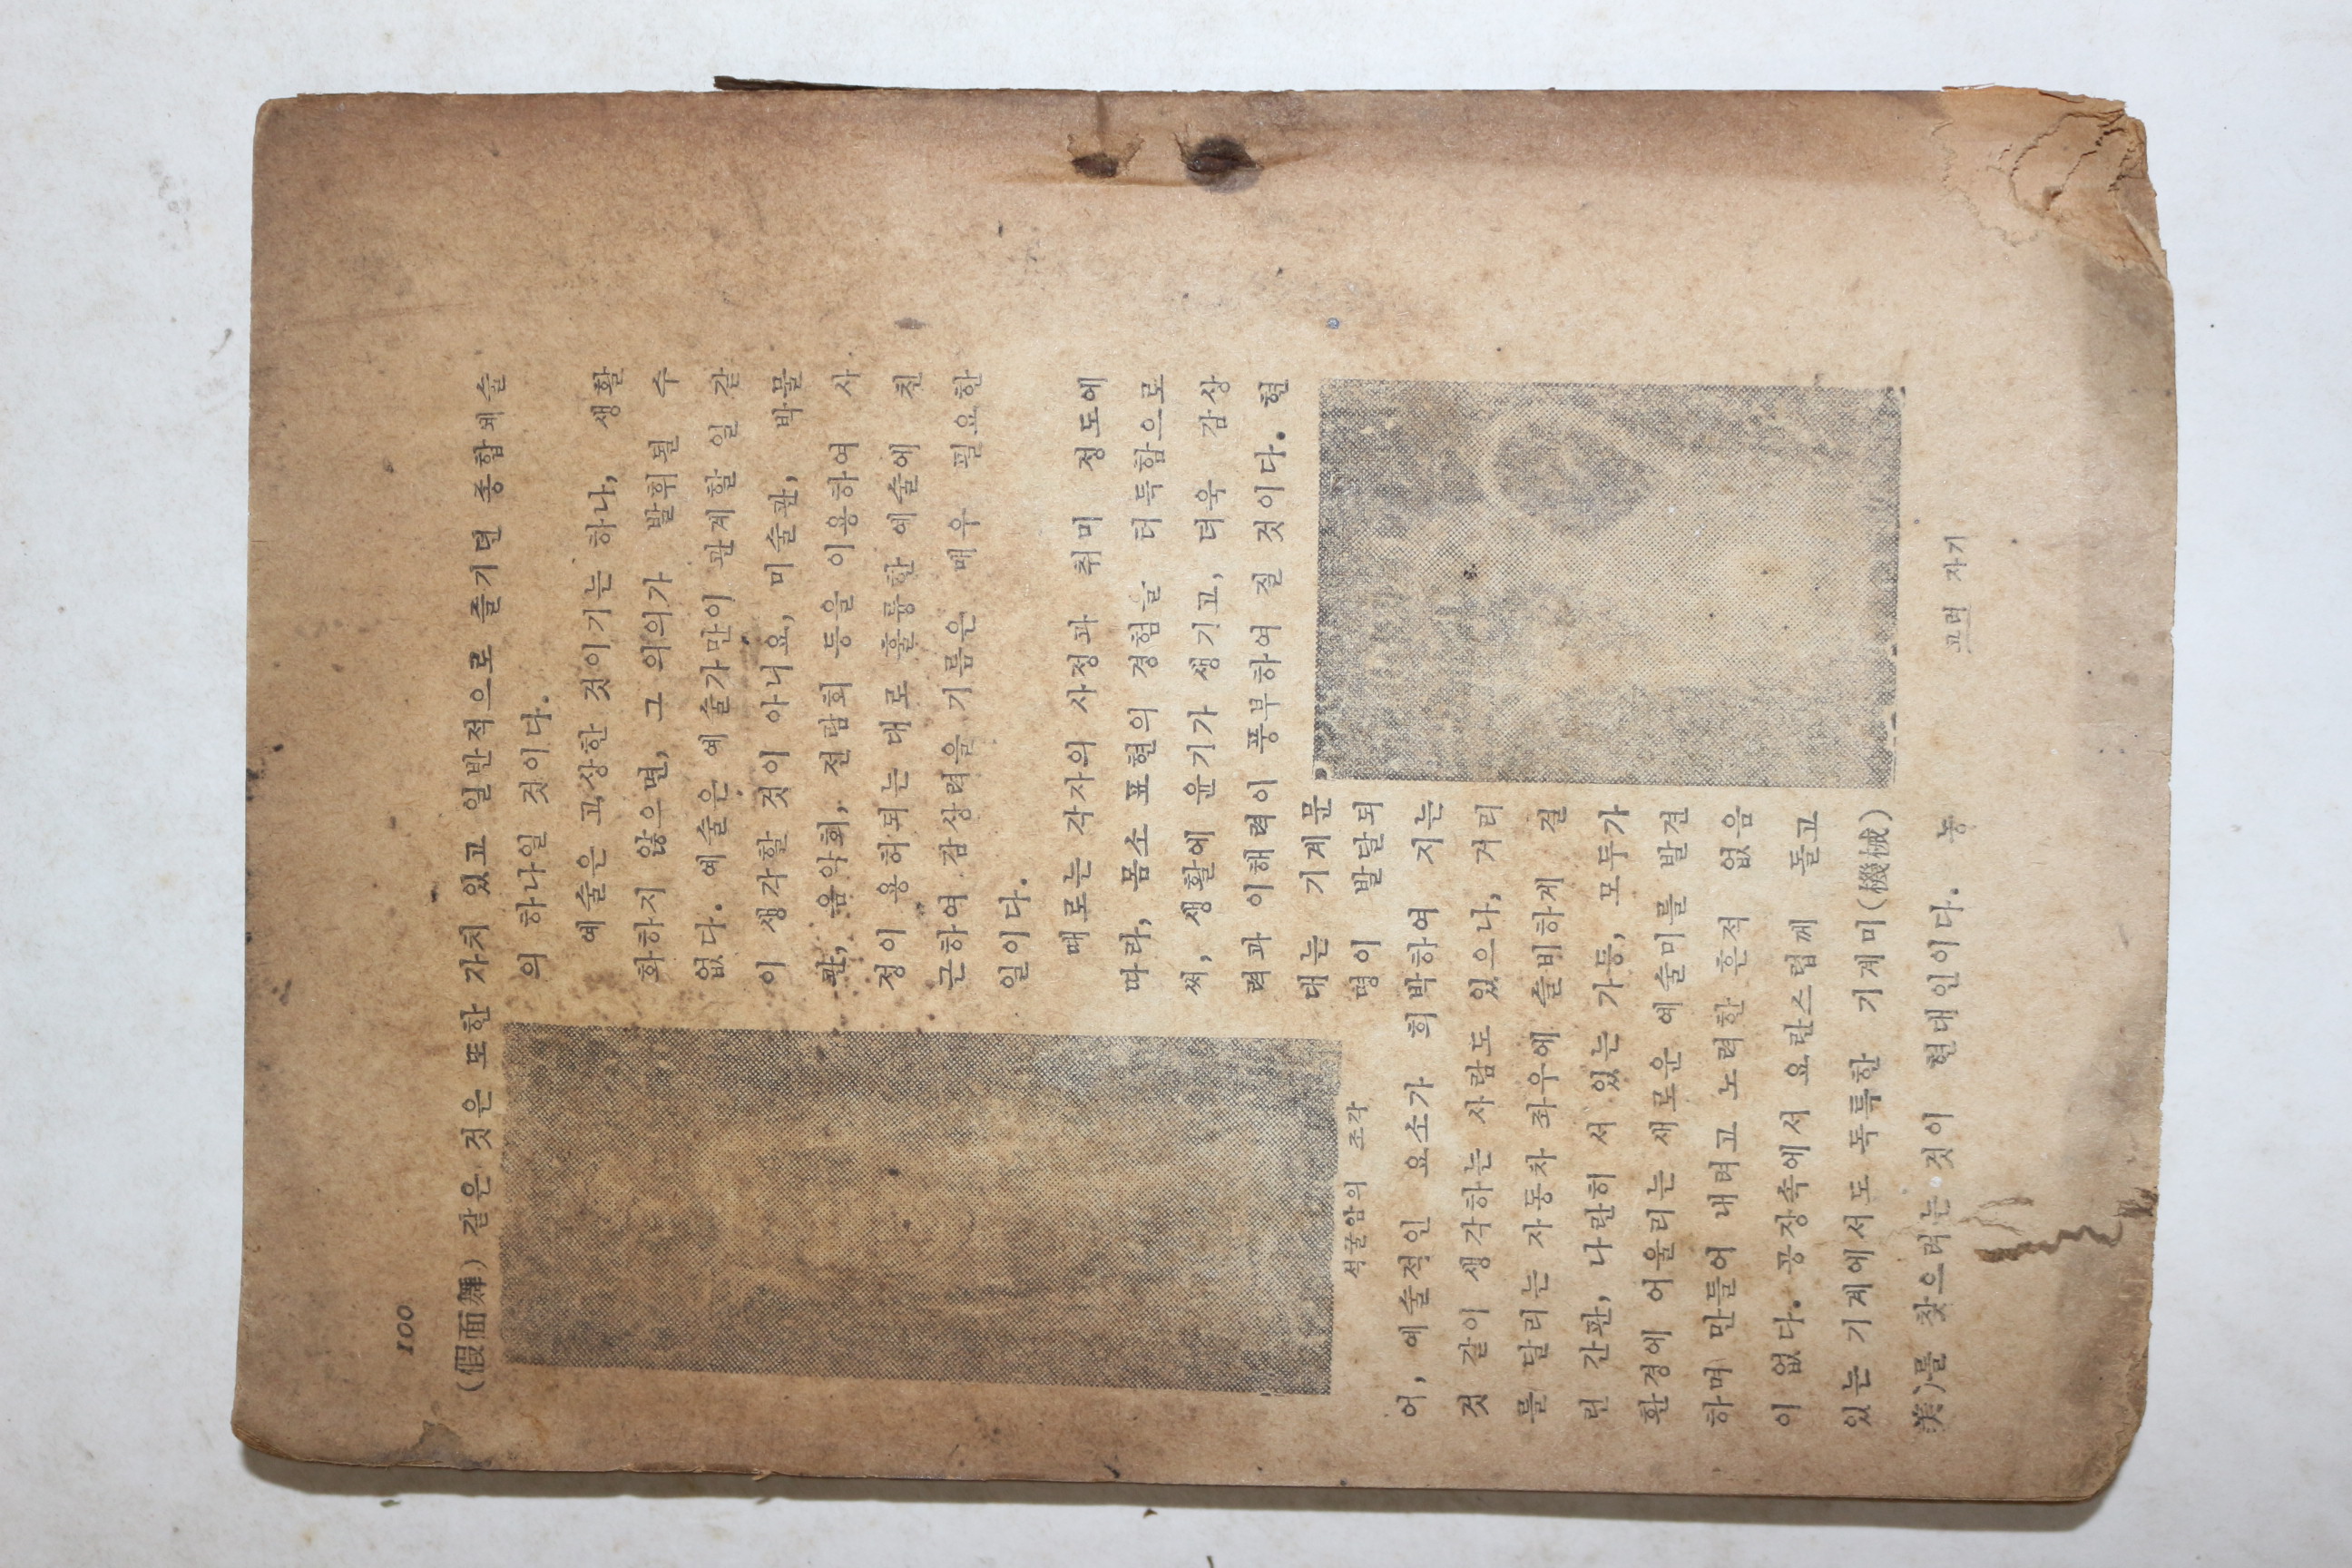 100
(假面舞) 같은 것은 또한 가치 있고 일반적으로 즐기던 종합예술
의 하나일 것이다.
예술은 고상한 것이기는 하나, 생활
화하지 않으면, 그 의의가 발휘될 수
없다. 예술은 예술가만이 관계할 일 같
이 생각할 것이 아니요, 미술관, 박물
관, 음악회, 전람회 등을 이용하여 사
정이 용허되는 대로 훌륭한 예술에 친
근하여 감상력을 기름은 매우 필요한
일이다.
때로는 각자의 사정과 취미 정도에
따라, 몸소 표현의 경험을 터득함으로
써, 생활에 윤기가 생기고, 더욱 감상
력과 이해력이 풍부하여 질 것이다. 현
대는 기계문
명이 발달되
석굴암의 조각
어, 예술적인 요소가 희박하여 지는
것 같이 생각하는 사람도 있으나, 거리
를 달리는 자동차 좌우에 즐비하게 걸
린 간판, 나란히 서 있는 가등, 모두가
환경에 어울리는 새로운 예술미를 발견
하며 만들어 내려고 노력한 흔적 없음
이 없다. 공장속에서 요란스럽게 돌고
있는 기계에서도 독특한 기계미(機械
美)를 찾으려는 것이 현대인이다. 농
고려 자기